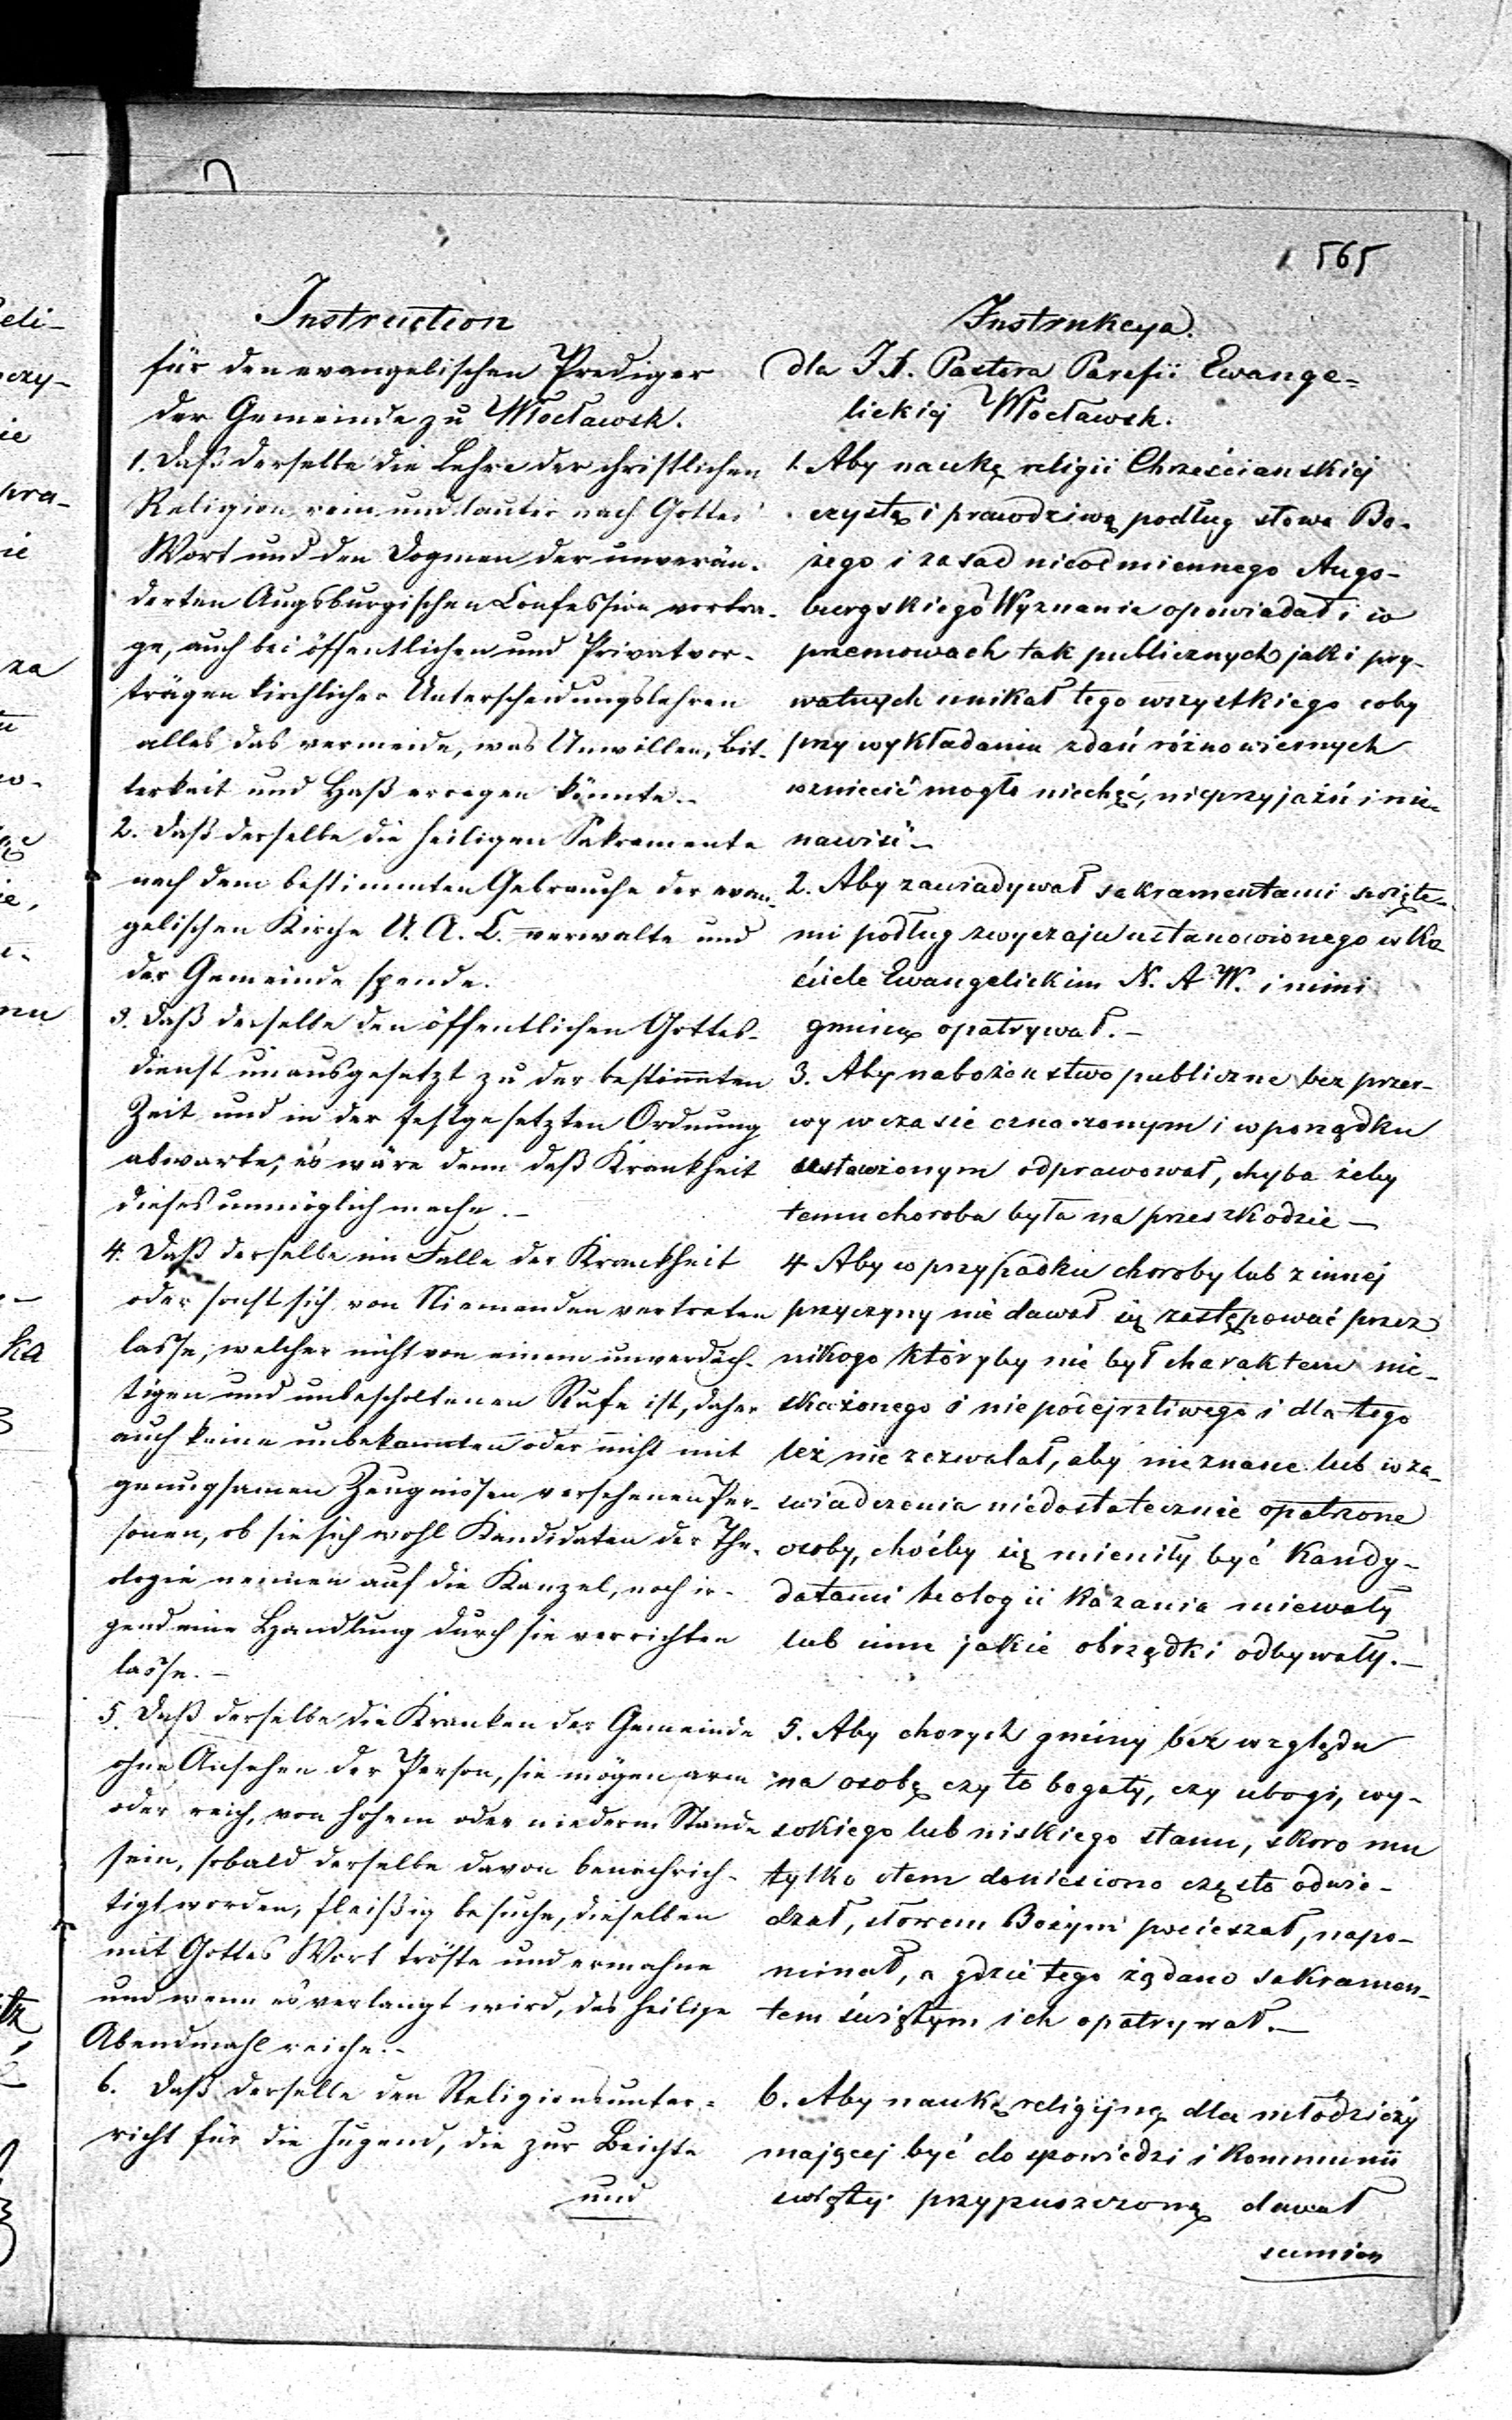 565
Instruction
für den evangelischen Prediger
der Gemeinde zu Włocławek.
1. Daß derselbe die Lehre der christlichen
Religion rein und lauter nach Gottes
Wort und den Dogmen der unverän-
derten Augsburgischen Confession vortra-
ge, auch bei öffentlichen und Privatvor-
trägen kirchlicher Unterscheidungslehren
alles das vermeide, was Unwillen, Bit-
terkeit und Haß erregen könnte.-
2. Daß derselbe die heiligen Sakramente
nach dem bestimmten Gebrauche der evan-
gelischen Kirche U. A. C. verwalte und
der Gemeinde spende.
3. Daß derselbe den öffentlichen Gottes-
dienst unausgesetzt zu der bestimmten
Zeit und in der festgesetzten Ordnung
abwarte, es wäre denn daß Krankheit
dieses unmöglich mache.-
4. Daß derselbe im Falle der Krankheit
oder sonst sich von Niemanden vertreten
lasse, welcher nicht von einem unverdäch-
tigen und unbescholtenen Rufe ist, daher
auch keine unbekannten oder nicht mit
genugsamen Zeugnissen versehenen Per-
sonen, ob sie sich wohl Kandidaten der The-
ologie nennen auf die Kanzel, noch ir-
gend eine Handlung durch sie verrichten
lasse.-
5. Daß derselbe die Kranken der Gemeinde
ohne Ansehen der Person, sie mögen arm
oder reich, von hohem oder niederm Stande
sein, sobald derselbe davon benachrich-
tigt worden, fleißig besuche, dieselben
mit Gottes Wort tröste und ermahne
und wenn es verlangt wird, das heilige
Abendmahl reiche.-
6. Daß derselbe den Religionsunter-
richt für die Jugend, die zur Beichte
und
Instrukcya.
dla J. X. Pastora Parafii Ewange-
lickiéj Włocławek.
1. Aby naukę religii Chrześcianskiej
czystą i prawdziwą podług słowa Bo-
żego i zasad nieodmiennego Augs-
burgskiego Wyznania opowiadał i w
przemowach tak publicznych jak i pry-
watnych unikał tego wszystkiego coby
przy wykładaniu zdań różnowiernych
wzniecić mogło niechęć, nieprzyjaźń i nie-
nawiść.-
2. Aby zawiadywał sakramentami święte-
mi podług zwyczaju ustanowionego w Ko-
ściele Ewangelickim N. A. W. i nimi
gminę opatrywał.-
3. Aby nabożeństwo publiczne bez przer-
wy w czasie oznaczonym i w porządku
ustawionym odprawował, chyba żeby
temu choroba była na przeszkodzie-
4. Aby w przypadku choroby lub z innej
przyczyny nie dawał się zastępować przez
nikogo któryby nie był charakteru nie-
skażonego i niepodejrzliwego i dla tego
też nie zezwalał, aby nieznane lub w za-
świadczenia niedostatecznie opatrzone
osoby, choćby się mieniły być Kandy-
datami teologii kazania miewały
lub inne jakie obrządki odbywały.-
5. Aby chorych gminy bez względu
na osobę czy to bogaty, czy ubogi, wy-
sokiego lub niskiego stanu, skoro mu
tylko o tem doniesiono często odwie-
dzał, słowem Bożym pocieszał, napo-
minał, a gdzie tego żądano sakramen-
tem świętym ich opatrywał.-
6. Aby naukę religijną dla młodzieży
mającej być do spowiedzi i Kommunii
świętéj przypuszczoną dawał
sumien